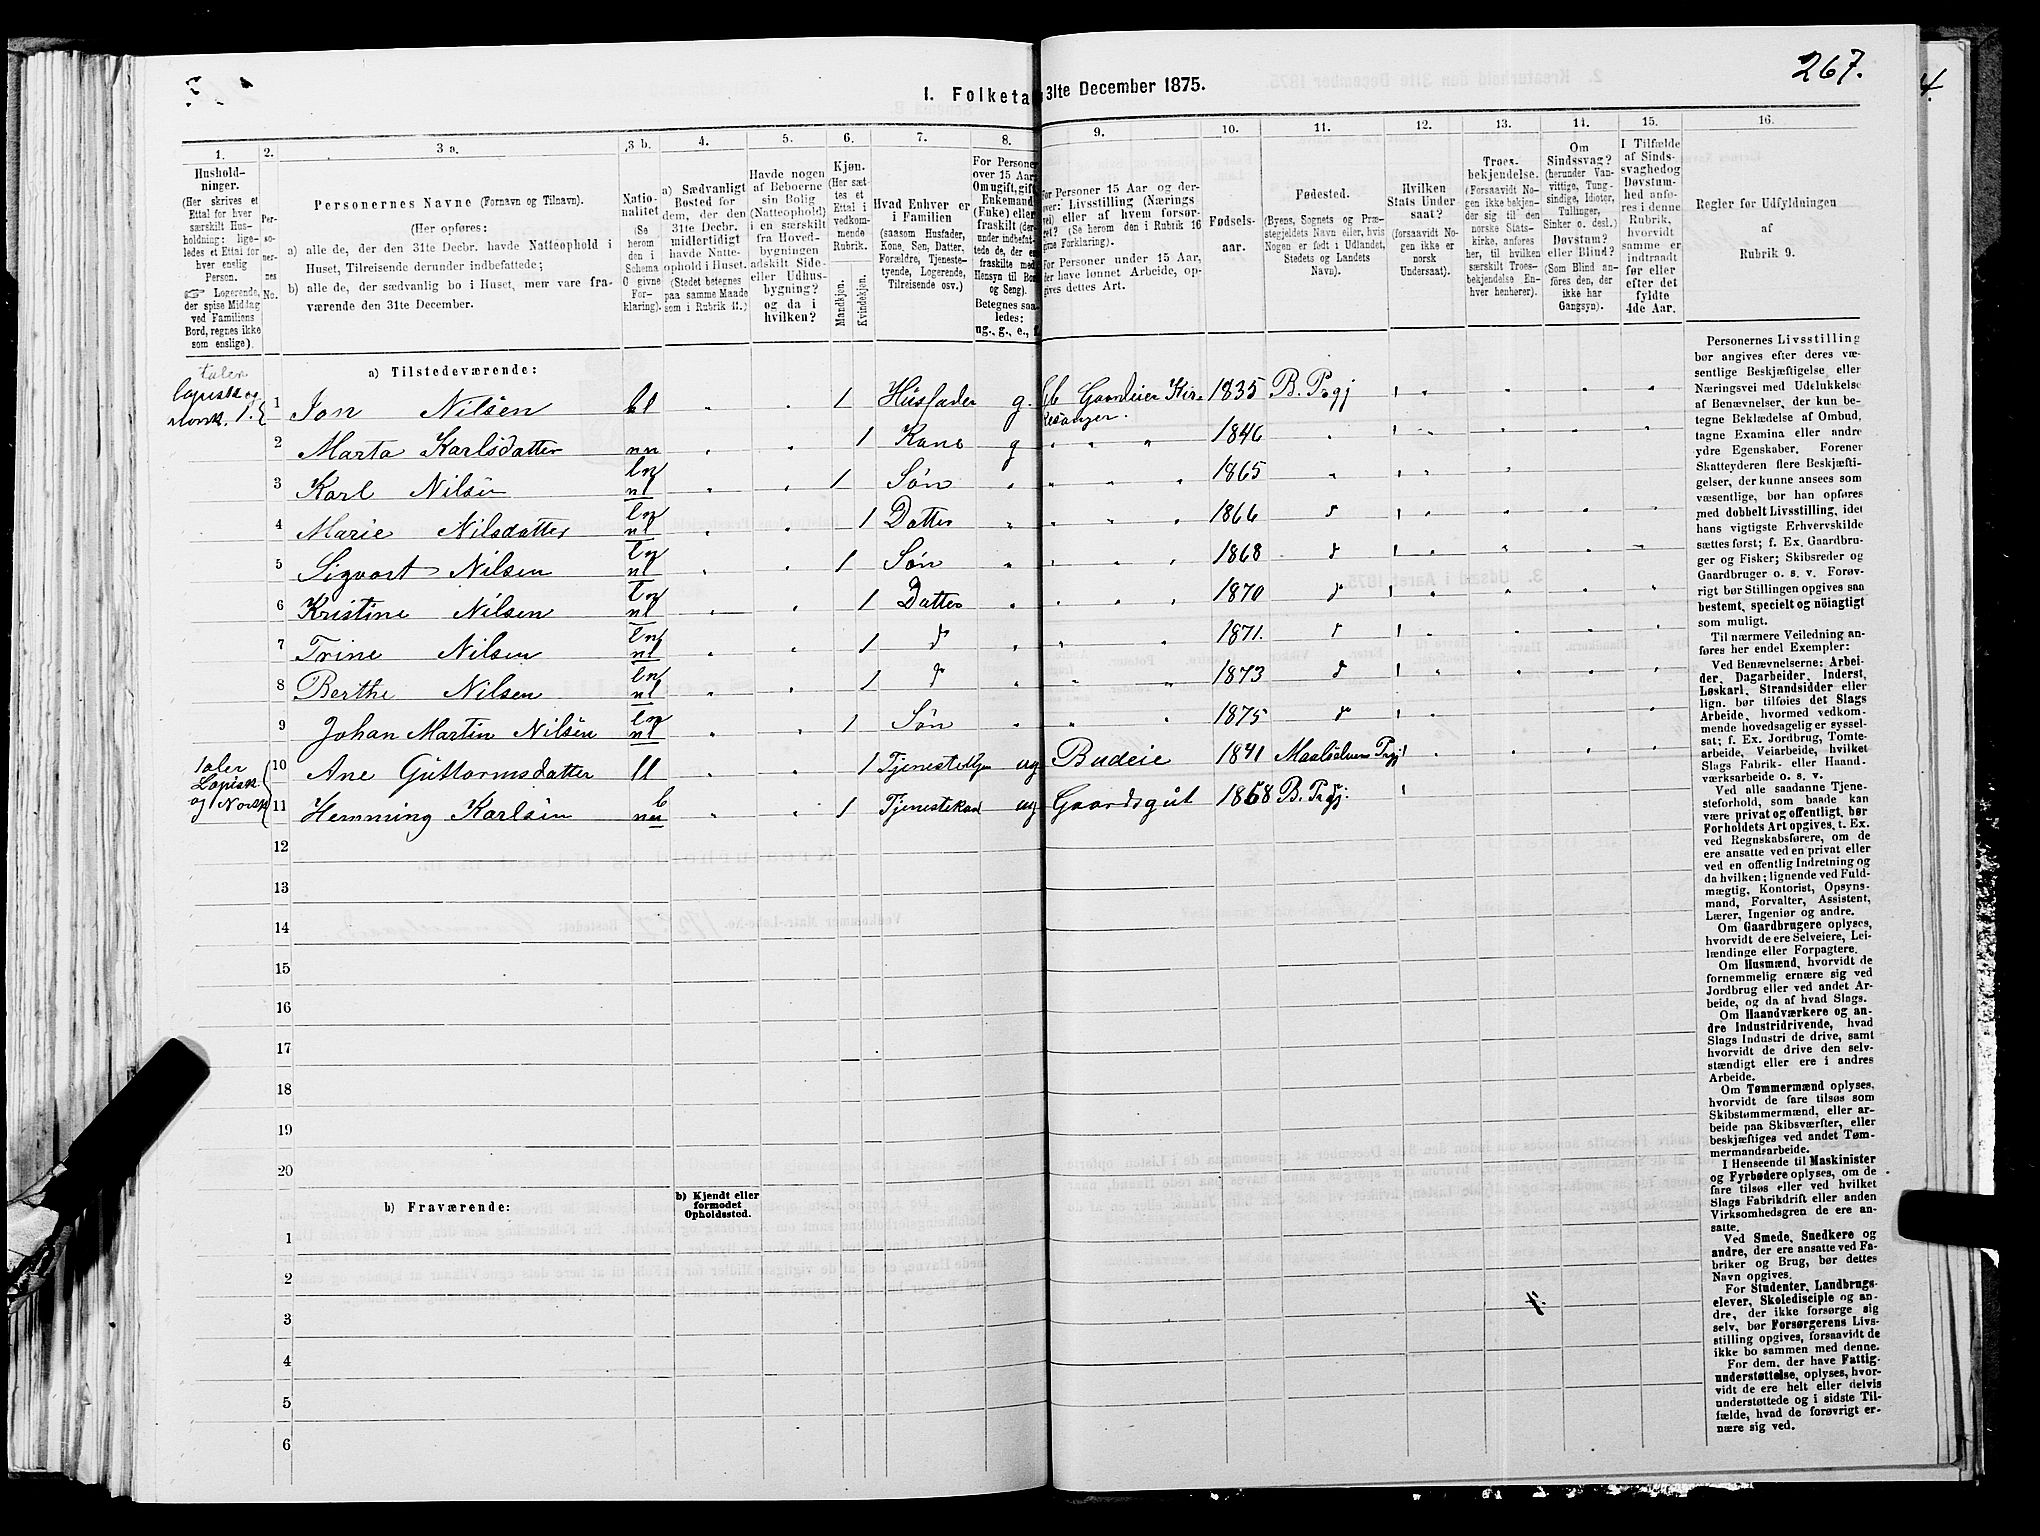 267.
4.
I. Folketa 31te December 1875.
1. 2. 3 a. 3 b. 4. 5. 6. 7. 8. 9. 10. 11. 12. 13. 14. 15. 16.
Hushold-
ninger.
(Her skrives et
Ettal for hver
særskilt Hus-
holdning; lige-
ledes et Ettal for
hver enslig
Person.
☞ Logerende,
der spise Middag
ved Familiens
Bord, regnes ikke
som enslige).
Per-
so-
ner-
nes
No.
Personernes Navne (Fornavn og Tilnavn).
(Her opføres:
a) alle de, der den 31te Decbr. havde Natteophold i
Huset, Tilreisende derunder indbefattede;
b) alle de, der sædvanlig bo i Huset, men vare fra-
værende den 31te December.)
Natio-
nalitet
(Se
herom
den i
Schema
O givne
For-
klaring).
a) Sædvanligt
Bosted for
dem, der den
31te Decbr.
midlertidigt
havde Natte-
ophold i Huset.
(Stedet betegnes
paa samme Maade
som i Rubrik 11.)
Havde nogen
af Beboerne
sin Bolig
(Natteophold)
i en særskilt
fra Hoved-
bygningen
adskilt Side-
eller Udhus-
bygning?
og da i
hvilken?
Kjøn.
(Her sæt-
tes et
Ettal i
vedkom-
mende
Rubrik.
Mandkjøn.
Kvindekjøn.
Hvad Enhver er
i Familien
(saasom Husfader,
Kone, Søn, Datter,
Forældre, Tjeneste-
tyende, Logerende,
Tilreisende osv.)
For Personer
over 15 Aar:
Om ugift, gift,
Enkemand
(Enke) eller
fraskilt (der-
under indbefat-
tede de, der er
fraskilte med
Hensyn til Bo
og Seng).
Betegnes saa-
ledes:
ug., g., e., f.
For Personer 15 Aar og der-
over: Livsstilling (Nærings
vei) eller af hvem forsør-
get? (Se herom den i Rubrik 16
givne Forklaring).
For Personer under 15 Aar,
der have lønnet Arbeide, op-
gives dettes Art.
Fødsels-
aar.
Fødested.
(Byens, Sognets og Præ-
stegjeldets Navn eller, hvis
Nogen er født i Udlandet,
Stedets og Landets
Navn).
Hvilken
Stats Under
saat?
(forsaavidt No-
gen ikke er
norsk
Undersaat).
Troes-
bekjendelse.
(Forsaavidt No-
gen ikke bekjen-
der sig til den
norske Stats-
kirke, anføres
her, til hvilken
særskilt Troes-
bekjendelse En-
hver henhører).
Om
Sindssvag?
(herunder Van-
vittige, Tung-
sindige, Idioter,
Tullinger,
Sinker o. desl.)
Døvstum?
eller Blind?
(Som Blind an-
føres den, der
ikke har
Gangsyn).
I Tilfælde
af Sinds-
svaghed og
Døvstum-
hed anfø-
res i denne
Rubrik,
hvorvidt
samme er
indtraadt
før eller
efter det
fyldte
4de Aar.
Regler for Udfyldningen
af
Rubrik 9.
a) Tilstedeværende:
taler
lapisk og
norsk. 1.
1 Jon Nilsen bl 1 Husfader g. Gaardeier 1835 B. Prgj
2 Marta Karlsdatter nn 1 Kone g 1846
3 Karl Nilsen ln nl 1 Søn 1865
4 Marie Nilsdatter ln nl 1 Datter 1866
5 Sigvart Nilsen ln nl 1 Søn 1868
6 Kristine Nilsen ln nl 1 Datter 1870
7 Trine Nilsen ln nl 1 1871.
8 Berthe Nilsen ln nl 1 1873
9 Johan Martin Nilsen ln nl 1 Søn 1875
taler
Lapisk
og Norsk
10 Ane Guttormsdatter ll 1 ug Budeie 1841 Maalselvens Prgj
11 Hemming Karlsen nn 1 ug Gaardsgut 1868 B. Prgj.
12
13
14
15
16
17
18
19
20
b) Fraværende:
b) Kjendt eller
formodet
Opholdssted.
1
2
3
4
5
6
Personernes Livsstilling
bør angives efter deres væ-
sentlige Beskjæftigelse eller
Næringsvei med Udelukkelse
af Benævnelser, der kun be-
tegne Beklædelse af Ombud,
tagne Examina eller andre
ydre Egenskaber. Forener
Skatteyderen flere Beskjæfti-
gelser, der kunne ansees som
væsentlige, bør han opføres
med dobbelt Livsstilling, idet
hans vigtigste Erhvervskilde
sættes først; f. Ex. Gaardbru-
ger og Fisker; Skibsreder og
Gaardbruger o. s. v. Forøv-
rigt bør Stillingen opgives saa
bestemt, specielt og nöiagtigt
som muligt.
Til nærmere Veiledning an-
føres her endel Exempler:
Ved Benævnelserne: Arbei-
der, Dagarbeider, Inderst,
Løskarl, Strandsidder eller
lign. bør tilføies det Slags
Arbeide, hvormed vedkom-
mende hovedsagelig er syssel-
sat; f. Ex. Jordbrug, Tomte-
arbeide, Veiarbeide, hvilket
Slags Fabrik- eller Haand-
værksarbeide o. s. v.
Ved alle saadanne Tjene-
steforhold, som baade kan
være privat og offentligt, bør
Forholdets Art opgives, t. Ex.
ved Regnskabsførere, om de
ere ansatte ved en privat eller
ved en offentlig Indretning og
da hvilken; lignende ved Fuld-
mægtig, Kontorist, Opsyns-
mand, Forvalter, Assistent,
Lærer, Ingeniør og andre.
Om Gaardbrugere oplyses,
hvorvidt de ere Selveiere, Lei-
lændinge eller Forpagtere.
Om Husmænd, hvorvidt de
fornemmelig ernære sig ved
Jordbrug eller ved andet Ar-
beide, og da af hvad Slags.
Om Haandværkere og an-
dre Industridrivende, hvad
Slags Industri de drive, samt
hvorvidt de drive den selv-
stændigt eller ere i andres
Arbeide.
Om Tømmermænd oplyses,
hvorvidt de fare tilsøs som
Skibstømmermænd, eller ar-
beide paa Skibsværfter, eller
beskjæftiges ved andet Tøm-
mermandsarbeide.
I Henseende til Maskinister
og Fyrbødere oplyses, om de
fare tilsøs eller ved hvilket
Slags Fabrikdrift eller anden
Virksomhedsgren de ere an-
satte.
Ved Smede, Snedkere og
andre, der ere ansatte ved Fa-
briker og Brug, bør dettes
Navn opgives.
For Studenter, Landbrugs-
elever, Skoledisciple og an-
dre, der ikke forsørge sig
selv, bør Forsørgerens Livs-
stilling opgives, forsaavidt de
ikke bo sammen med denne.
For dem, der have Fattig-
understøttelse, oplyses, hvor-
vidt de ere helt eller delvis
understøttede og i sidste Til-
fælde, hvad de forøvrigt er-
nære sig ved.